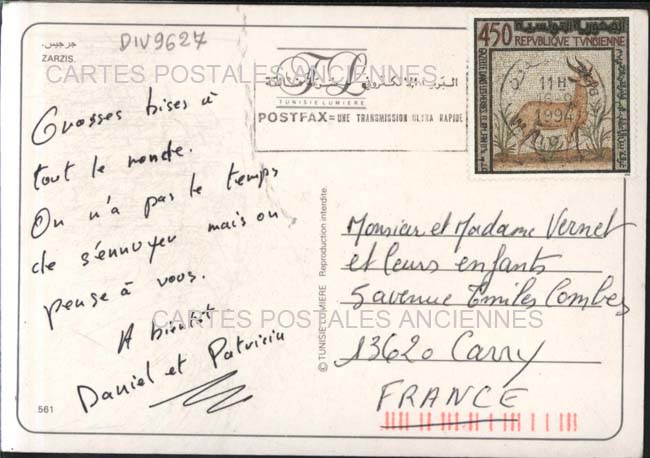 جرجيس.
ZARZIS.
DIV9627
CARTES POSTALES ANCIENNES
TL
TUNISIE LUMIERE
POSTFAX = UNE TRANSMISSION ULTRA RAPIDE
450
REPUBLIQUE TUNISIENNE
11H
1994
Grosses bises à
tout le monde.
On n'a pas le temps
de s'ennuyer mais on
pense à vous.
A bientôt
Daniel et Patricia
561
© TUNISIE LUMIERE Reproduction interdite.
Monsieur et Madame Vernet
et leurs enfants
5 avenue Emiles Combes
CARTES POSTALES ANCIENNES
13620 Carry
FRANCE